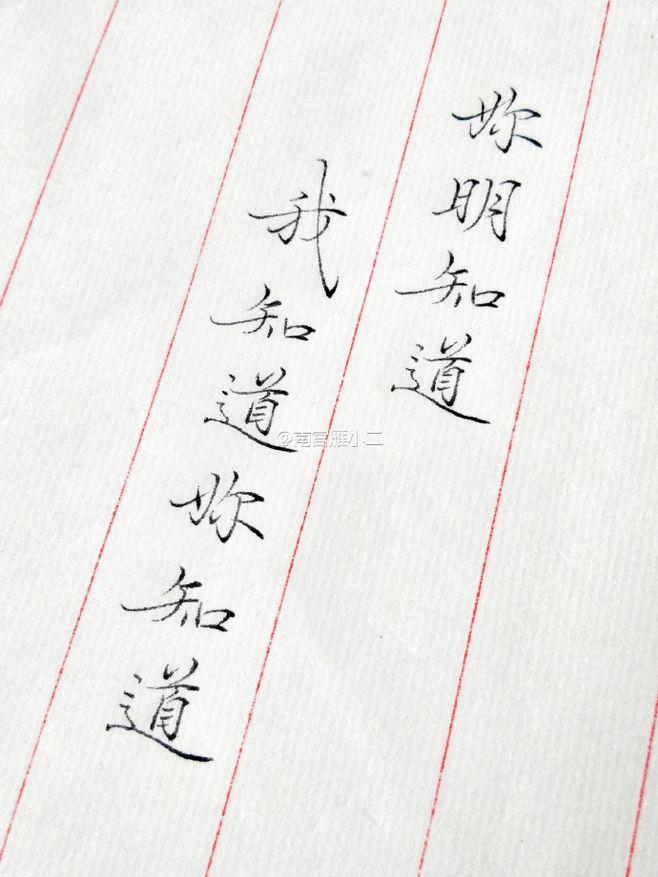 妳明知道
我知道妳知道
@南宫雁小二